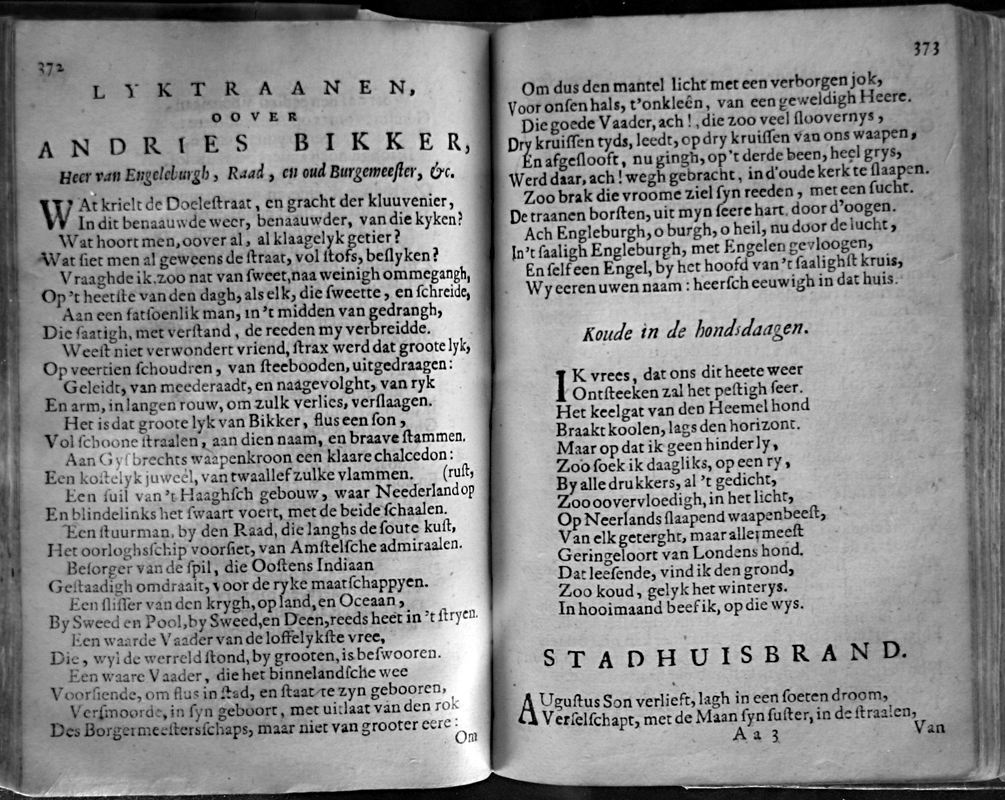 372
LYKTRAANEN,
OOVER
ANDRIES BIKKER,
Heer van Engeleburgh, Raad, en oud Burgemeeſter, &c.
WAt krielt de Doeleſtraat, en gracht der kluuvenier,
In dit benaauwde weer, benaauwder, van die kyken?
Wat hoort men, oover al, al klaagelyk getier?
Wat ſiet men al geweens de ſtraat, vol ſtofs, beſlyken?
Vraaghde ik, zoo nat van ſweet, naa weinigh ommegangh,
Op 't heetſte van den dagh, als elk, die ſweette, en ſchreide,
Aan een fatſoenlik man, in 't midden van gedrangh,
Die ſaatigh, met verſtand, de reeden my verbreidde.
Weeſt niet verwondert vriend, ſtrax werd dat groote lyk,
Op veertien ſchoudren, van ſteebooden, uitgedraagen:
Geleidt, van meederaadt, en naagevolght, van ryk
En arm, in langen rouw, om zulk verlies, verſlaagen.
Het is dat groote lyk van Bikker, flus een ſon,
Vol ſchoone ſtraalen, aan dien naam, en braave ſtammen.
Aan Gyſbrechts waapenkroon een klaare chalcedon:
Een koſtelyk juweêl, van twaallef zulke vlammen. (ruſt,
Een ſuil van 't Haaghſch gebouw, waar Neederland op
En blindelinks het ſwaart voert, met de beide ſchaalen.
Een ſtuurman, by den Raad, die langhs de ſoute kuſt,
Het oorloghsſchip voorſiet, van Amſtelſche admiraalen.
Beſorger van de ſpil, die Ooſtens Indiaan
Geſtaadigh omdraait, voor de ryke maatſchappyen.
Een ſliſſer van den krygh, op land, en Oceaan,
By Sweed en Pool, by Sweed, en Deen, reeds heet in 't ſtryen.
Een waarde Vaader van de loffelykſte vree,
Die, wyl de werreld ſtond, by grooten, is beſwooren.
Een waare Vaader, die het binnelandſche wee
Voorſiende, om flus in ſtad, en ſtaat te zyn gebooren,
Verſmoorde, in ſyn geboort, met uitlaat van den rok
Des Borgermeeſtersſchaps, maar niet van grooter eere:
Om
373
Om dus den mantel licht met een verborgen jok,
Voor onſen hals, t'onkleên, van een geweldigh Heere.
Die goede Vaader, ach!, die zoo veel ſloovernys,
Dry kruiſſen tyds, leedt, op dry kruiſſen van ons waapen,
En afgeſlooft, nu gingh, op 't derde been, heel grys,
Werd daar, ach! wegh gebracht, in d'oude kerk te ſlaapen.
Zoo brak die vroome ziel ſyn reeden, met een ſucht.
De traanen borſten, uit myn ſeere hart, door d'oogen.
Ach Engleburgh, o burgh, o heil, nu door de lucht,
In 't ſaaligh Engleburgh, met Engelen gevloogen,
En ſelf een Engel, by het hoofd van 't ſaalighſt kruis,
Wy eeren uwen naam: heerſch eeuwigh in dat huis.
Koude in de hondsdaagen.
IK vrees, dat ons dit heete weer
Ontſteeken zal het peſtigh ſeer.
Het keelgat van den Heemel hond
Braakt koolen, lags den horizont.
Maar op dat ik geen hinder ly,
Zoo ſoek ik daagliks, op een ry,
By alle drukkers, al 't gedicht,
Zoo oovervloedigh, in het licht,
Op Neerlands ſlaapend waapenbeeſt,
Van elk geterght, maar allermeeſt
Geringeloort van Londens hond.
Dat leeſende, vind ik den grond,
Zoo koud, gelyk het winterys.
In hooimaand beef ik, op die wys.
STADHUISBRAND.
AUguſtus Son verlieft, lagh in een ſoeten droom,
Verſelſchapt, met de Maan ſyn ſuſter, in de ſtraalen,
Aa 3
Van